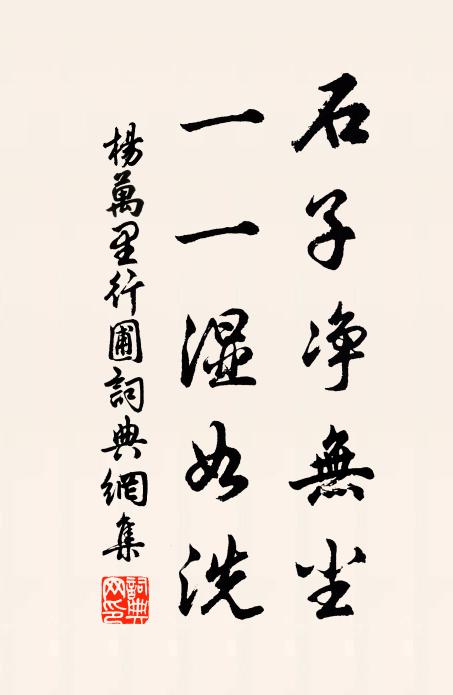 石子净無尘
一一濕如洗
楊萬里行圃詞典網集
詞典网印